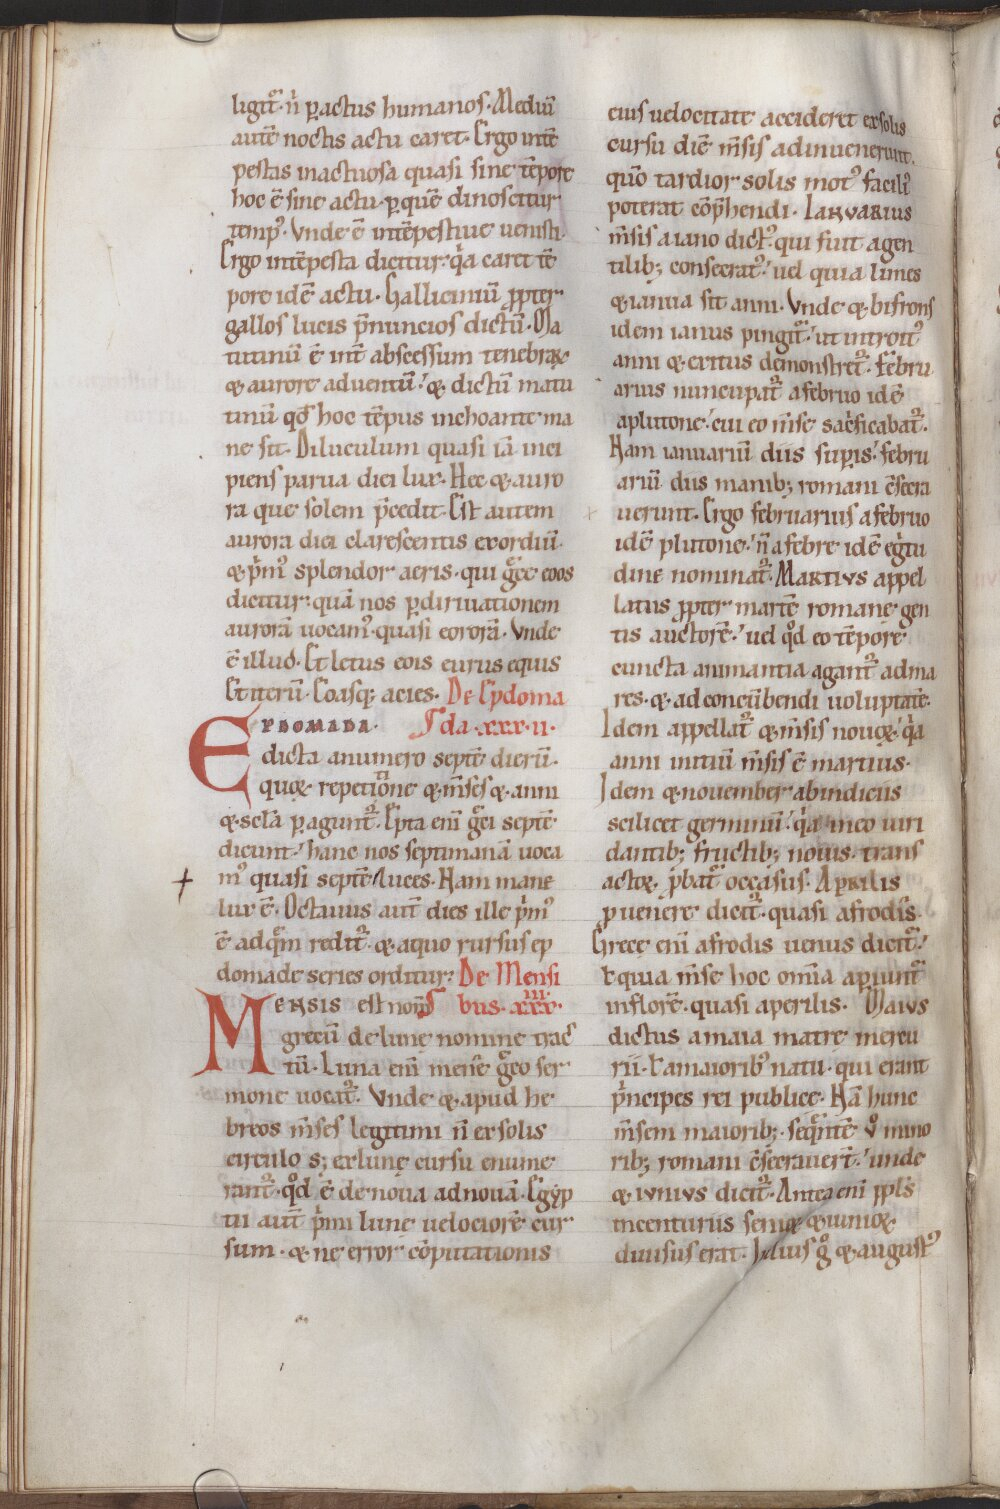 ligit᷑. n̄ ꝑ actus humanos. Mediū
autē noctis actu caret. Ergo intē
pestas inactuosa quasi sine tēpore
hoc ē sine actu. ꝑ quē dinoscitur
temp᷒. Vnde ē intēpestiue uenisti.
Ergo intēpesta dicitur: q̇a caret tē
pore idē actu. Galliciniū ꝓpter
gallos lucis p̄nuncios dictū. Ma
tutinū ē int̄ abscessum tenebraꝝ
& aurore aduentū: & dictū matu
tinū qđ hoc tēpus inchoante ma
ne sit. Diluculum quasi iā inci
piens parua diei lux. Hec & auro
ra que solem p̄cedit. Est autem
aurora diei clarescentis exordiū.
& p̍m᷒ splendor aeris. qui grͨe eoos
dicitur: quā nos ꝑ diriuationem
aurorā uocam᷒. quasi eororā. Vnde
ē illud. Et letus eois eurus equis
Et iterū. Eoasq; acies. De Epdoma
EPDOMADA. da .xxx.ii.
dicta a numero septē dierū.
quoꝝ repetitione & m̄ses & anni
& sclā ꝑagunt᷑. Epta eni grͨei septē
dicunt: hanc nos septimanā uoca
m᷒ quasi septē luces. Nam mane
lux ē. Octauus aut̄ dies ille p̍m᷒
ē ad q̄m redit᷑. & a quo rursus ep
domade series orditur: De Mensi
MENSIS est nom̄ bus. xxx.iii.
grecū de lune nomine trac
tū. Luna eni mene grͨeo ser
mone uocat᷑. Vnde & apud he
breos m̄ses legitimi n̄ ex solis
circulo s; ex lunę cursu enume
rant᷑. qd̊ ē de noua ad nouā. Egyp
tii aut̄ p̍mi lunę uelociorē cur
sum. & ne error cōputationis
eius uelocitate accideret ex solis
cursu diē m̄sis adinuenerunt.
quō tardior solis mot᷒ facili᷒
poterat cōp̄hendi. IANVARIUS
m̄sis a iano dict᷒. qui fuit a gen
tilib; consecrat᷒: uel quia limes
& ianua sit anni. Vnde & bifrons
idem ianus pingit᷑: ut introit᷒
anni & exitus demonstret᷑. Febru
arius nuncupat᷑ a februo idē
a plutone: cui eo m̄se sac̍ficabat᷑.
Nam ianuariū diis suꝑis: febru
ariū diis manib; romani c̄secra
uerunt. Ergo februarius a februo
idē plutone: n̄ a febre idē eg̍tu
dine nominat᷑. MARTIVS appel
latus ꝓpter martē romanę gen
tis auctorē: uel qd̊ eo tēpore
cuncta animantia agant᷑ ad ma
res. & ad concūbendi uoluptatē.
Idem appellat᷑ & m̄sis nouoꝝ: q̇a
anni initiū m̄sis ē martius.
Idem & nouember ab indiciis
scilicet germinū: q̇a in eo uiri
dantib; fructib; nouis. trans
actoꝝ p̍bat᷑ occasus. APRILIS
ꝓ uenere dicit᷑. quasi afrodis̄.
Grece eni afrodis uenus dicit᷑:
Ł qua m̄se hoc omīa apiunt᷑
in florē. quasi aperilis. MAIVS
dictus a maia matre mercu
rii. Ł a maiorib᷒ natu. qui erant
p̍ncipes rei publice. Nā hunc
m̄sem maiorib;. seq̄ntē v̊ mino
rib; romani c̄secrauert̄: unde
& IVNIVS dicit᷑. Antea eni ppl̄s
in centuriis senioꝝ & iunioꝝ
diuisus erat. Iulius g̊ & august᷒